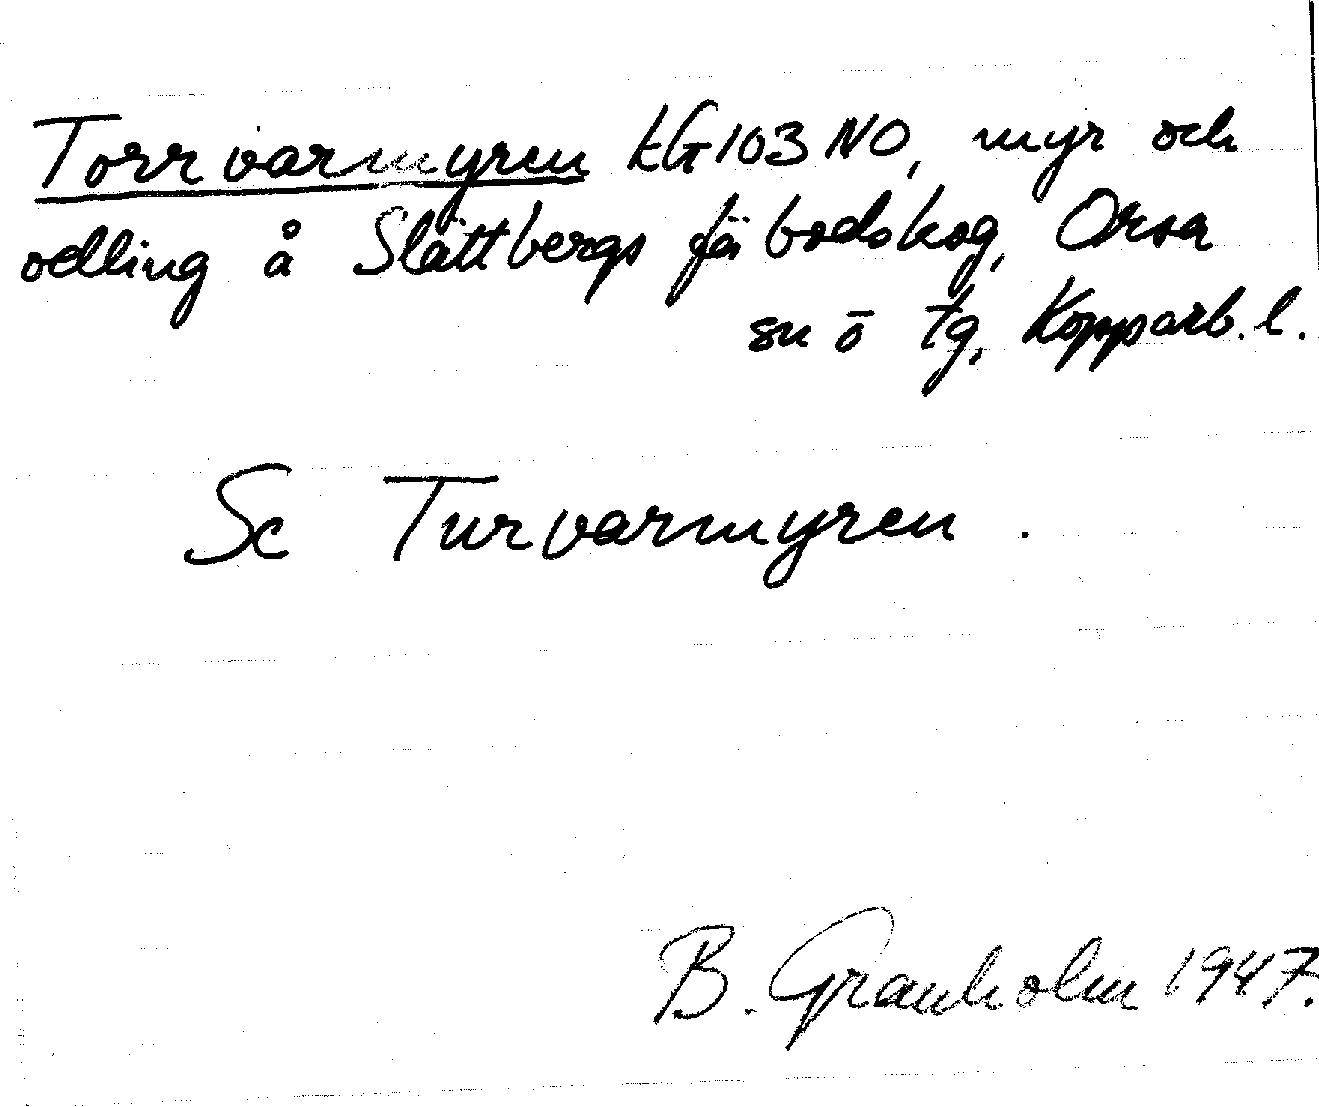 Torrvarmyren kG103NO, myr och
odling å Slättbergs fäbodskog, Orsa
sn ö tg, Kopparb. l.
Sc Turvarmyren.
B. Granholm 1947.